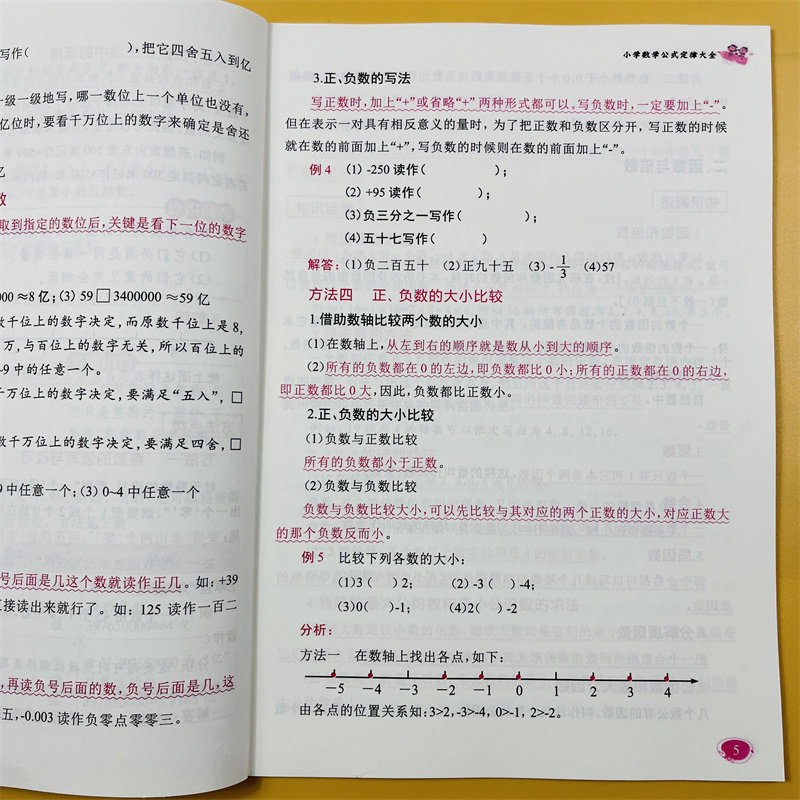 写作(　　　　　),把它四舍五入到亿
一级一级地写,哪一数位上一个单位也没有,
亿位时,要看千万位上的数字来确定是舍还
亿
数
取到指定的数位后,关键是看下一位的数字
000≈8亿;(3) 59□3400000≈59亿
数千位上的数字决定,而原数千位上是8,
万,与百位上的数字无关,所以百位上的
~9中的任意一个。
千万位上的数字决定,要满足“五入”,□
数千万位上的数字决定,要满足四舍,□
9中任意一个;(3) 0~4中任意一个
号后面是几这个数就读作正几。如:+39
直接读出来就行了。如:125 读作一百二
,再读负号后面的数,负号后面是几,这
五,-0.003读作负零点零零三。
小学数学公式定律大全
3.正、负数的写法
写正数时,加上“+”或省略“+”两种形式都可以。写负数时,一定要加上“-”。
但在表示一对具有相反意义的量时,为了把正数和负数区分开,写正数的时候
就在数的前面加上“+”,写负数的时候则在数的前面加上“-”。
例4 (1) -250读作(　　　　　);
(2) +95读作(　　　　);
(3)负三分之一写作(　　　　);
(4)五十七写作(　　　　)
解答:(1)负二百五十 (2)正九十五 (3) -1/3 (4)57
方法四 正、负数的大小比较
1.借助数轴比较两个数的大小
(1)在数轴上,从左到右的顺序就是数从小到大的顺序。
(2)所有的负数都在0的左边,即负数都比0小;所有的正数都在0的右边,
即正数都比0大,因此,负数都比正数小。
2.正、负数的大小比较
(1)负数与正数比较
所有的负数都小于正数。
(2)负数与负数比较
负数与负数比较大小,可以先比较与其对应的两个正数的大小,对应正数大
的那个负数反而小。
例5 比较下列各数的大小:
(1)3(　　)2; (2)-3(　　)-4;
(3)0(　　)-1; (4)2(　　)-2
分析:
方法一 在数轴上找出各点,如下:
-5 -4 -3 -2 -1 0 1 2 3 4
由各点的位置关系知:3>2,-3>-4, 0>-1, 2>-2。
5